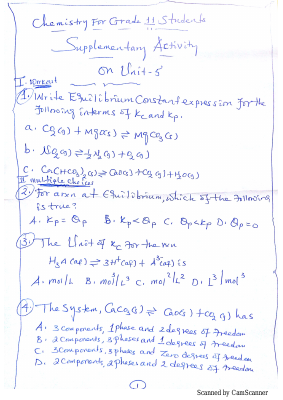 Chemistry For Grade 11 Students
Supplementary Activity
on Unit-5
I. workout
1. Write Equilibrium Constant expression for the
following interms of Kc and Kp.
a. CO2(g) + MgO(s) ⇌ MgCO3(s)
b. NO2(g) ⇌ ½N2(g) + O2(g)
c. Ca(HCO3)2(s) ⇌ CaO(s) + CO2(g) + H2O(g)
II multiple choices
2. For a rxn at Equilibrium, which of the following
is true?
A. Kp = Qp B. Kp < Qp C. Qp < Kp D. Qp = 0
3. The Unit of Kc for the rxn
H3A(aq) ⇌ 3H+(aq) + A3-(aq) is
A. mol/L B. mol3/L3 C. mol2/L2 D. L3/mol3
4. The System, CaCO3(s) ⇌ CaO(s) + CO2(g) has
A. 3 Components, 1 phase and 2 degrees of freedom
B. 2 Components, 3 phases and 1 degrees of freedom
C. 3 Components, 3 phases and Zero degrees of freedom
D. 2 Components, 2 phases and 2 degrees of freedom
1
Scanned by CamScanner